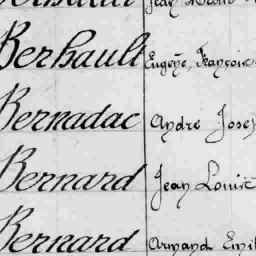 Berhault Eugène, François
Bernadac André Josep
Bernard Jean Louis
Bernard Armand Emil